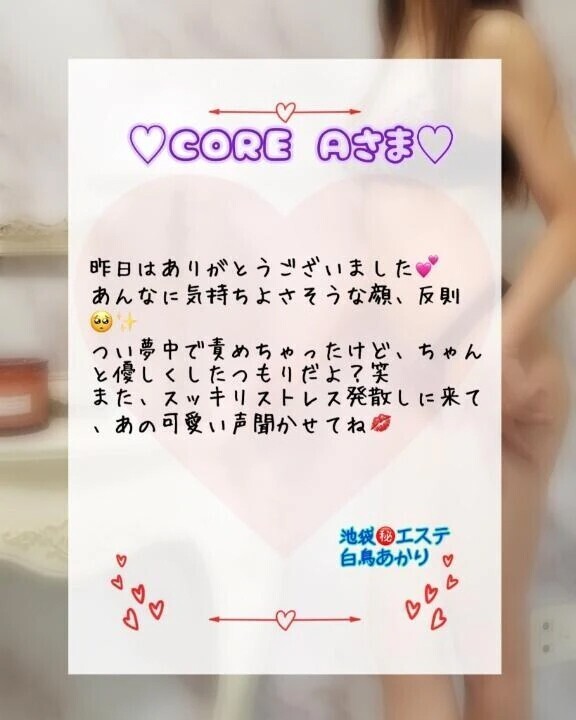 ♡CORE Aさま♡
昨日はありがとうございました💕
あんなに気持ちよさそうな顔、反則
🥺✨
つい夢中で責めちゃったけど、ちゃん
と優しくしたつもりだよ？笑
また、スッキリストレス発散しに来て
、あの可愛い声聞かせてね💋
池袋㊙️エステ
白鳥あかり